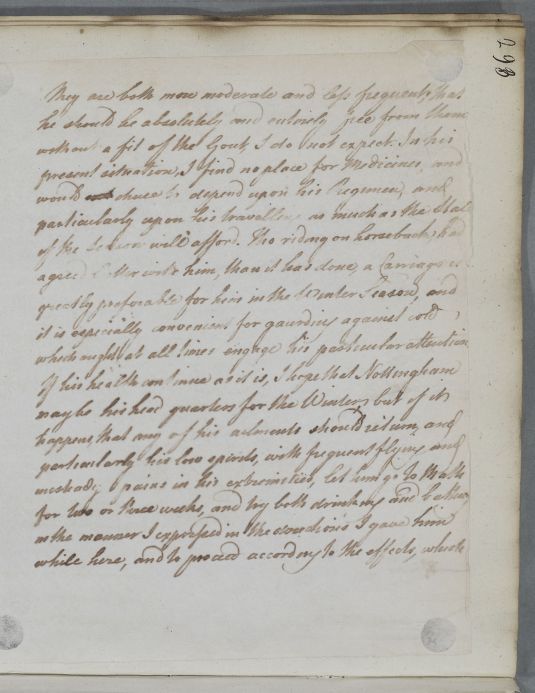 298
they are both more moderate and less frequent, that
he should be absolutely, and entirely free from them
without a fit of the Gout, I do not expect. In his
present situation, I find no place for Medicines, and
would chuse to depend upon his Regimen, and
particularly upon his travelling as much as the State
of the Season will afford. Tho riding on horseback, had
agreed better with him, than it has done, a Carriage is
greatly preferable for him in the Winter Season, and
it is especially convenient for gaurding against cold,
which ought at all times engage his particular attention
If his health continue as it is, I hope that Nottingham
may be his head quarters for the Winter, but if it
happens, that any of his ailments should return, and
particularly his low spirits, with frequent flying and
pains in his extremities, let him go to Bath
for two or three weeks, and try both drinking and bathing
in the manner I expressed in the directions I gave him
while here, and to proceed according to the effects, which